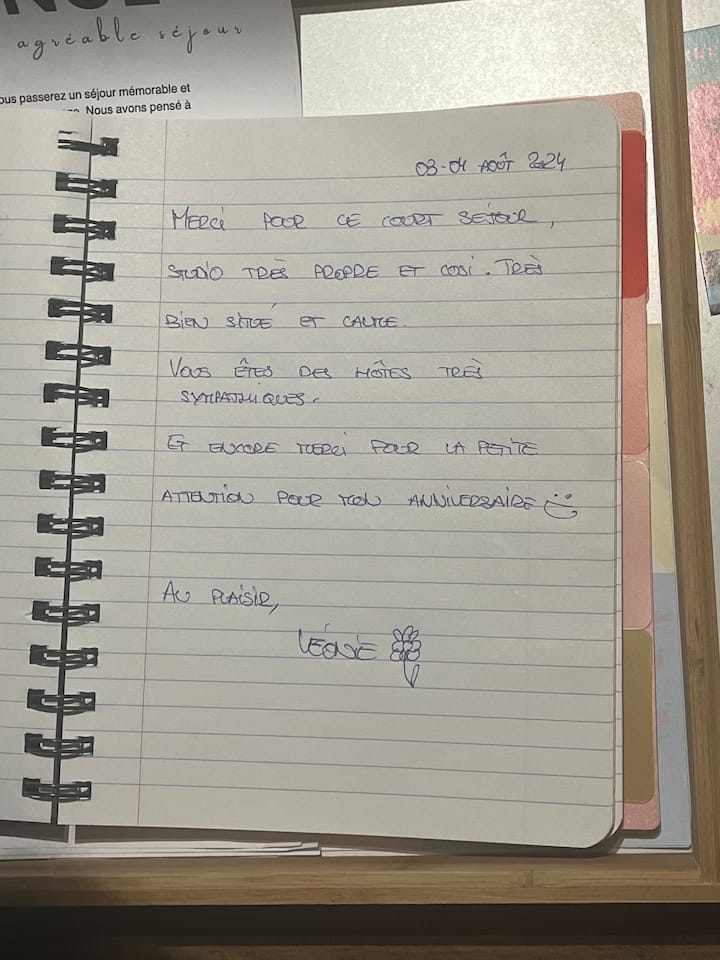 agréable séjour
ous passerez un séjour mémorable et
Nous avons pensé à
03-04 AOÛT 2024
MERCI POUR CE COURT SÉJOUR,
STUDIO TRÈS PROPRE ET COSI. TRÈS
BIEN SITUÉ ET CALME.
VOUS ÊTES DES HÔTES TRÈS
SYMPATHIQUES.
ET ENCORE MERCI POUR LA PETITE
ATTENTION POUR MON ANNIVERSAIRE
AU PLAISIR,